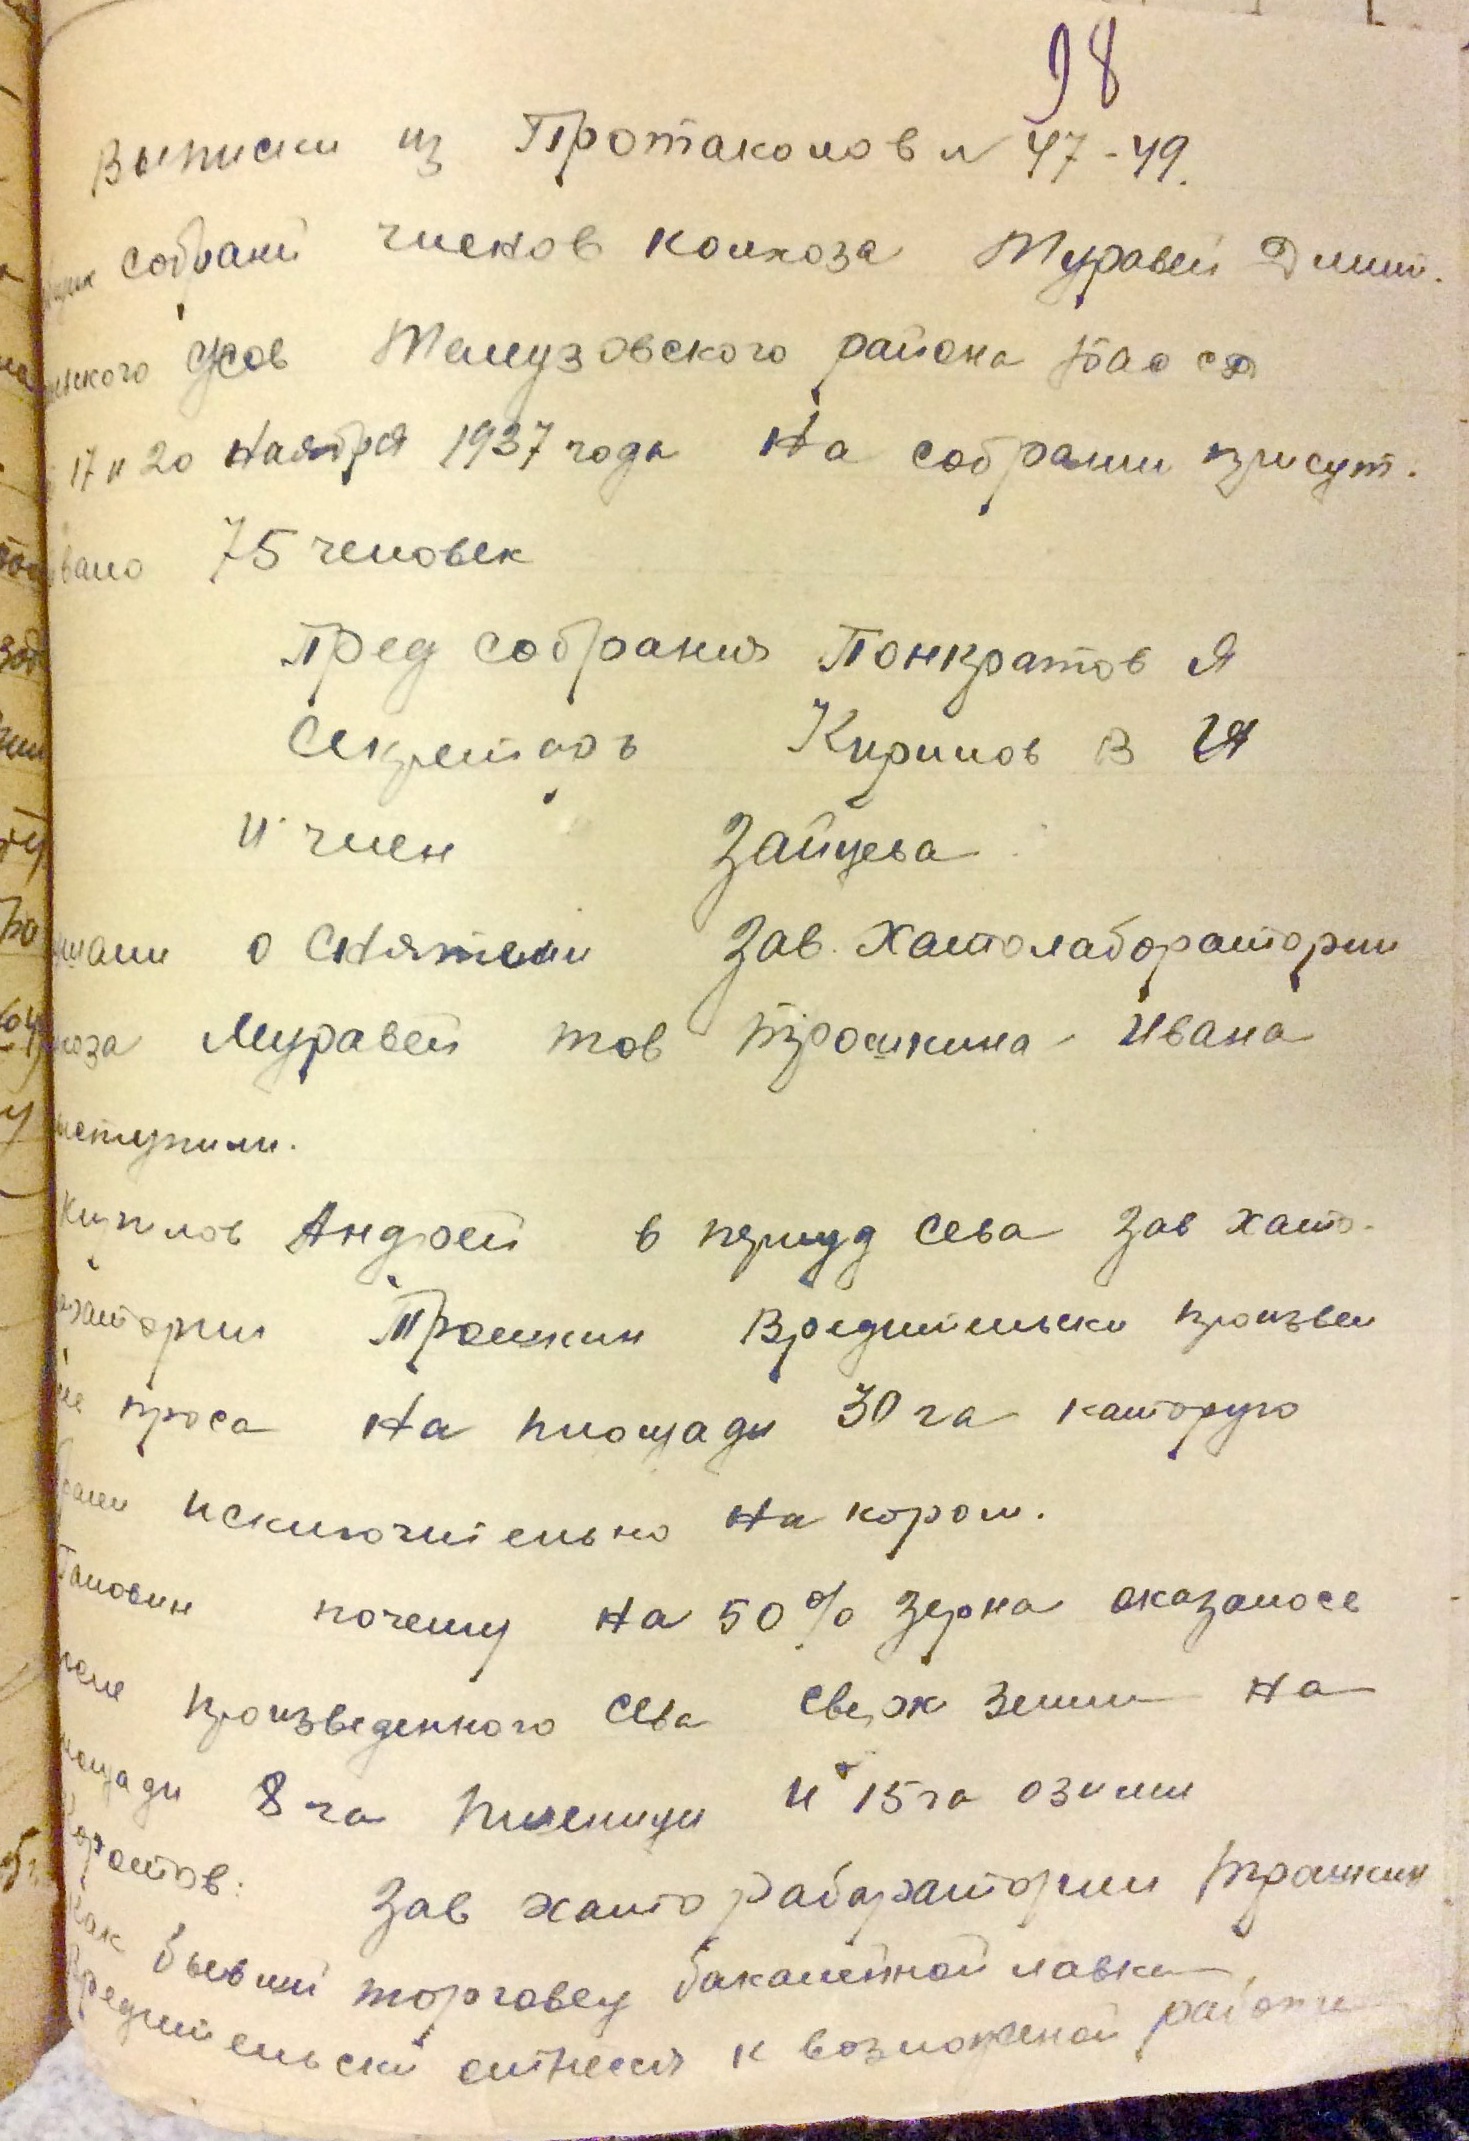 98
Выписки из Протаколов № 47-49.
собраний членов колхоза Муравей Дмит.
ского с/сов Мелеузовского района БАССР
17 и 20 Наября 1937 года На собрании присут.
вало 75 человек
Пред собрания Понкратов Я
Секретарь Кирилов В И
и член Зайцева
шали о снятии Зав. Хатолаборатории
хоза Муравей тов Трошкина Ивана
ыступили.
Андрей в периуд сева Зав хато-
ратории Трошкин Вредительски произвел
проса На площади 30 га каторую
исключительно на корм.
почему на 50% зерна оказалось
произведенного сева сверх земли на
лощади 8 га пшеници и 15 га озими
Зав хаторабаратории Трошкин
как бывший торговец бакалейной лавки
Вредительски отнесся к возложеной работи